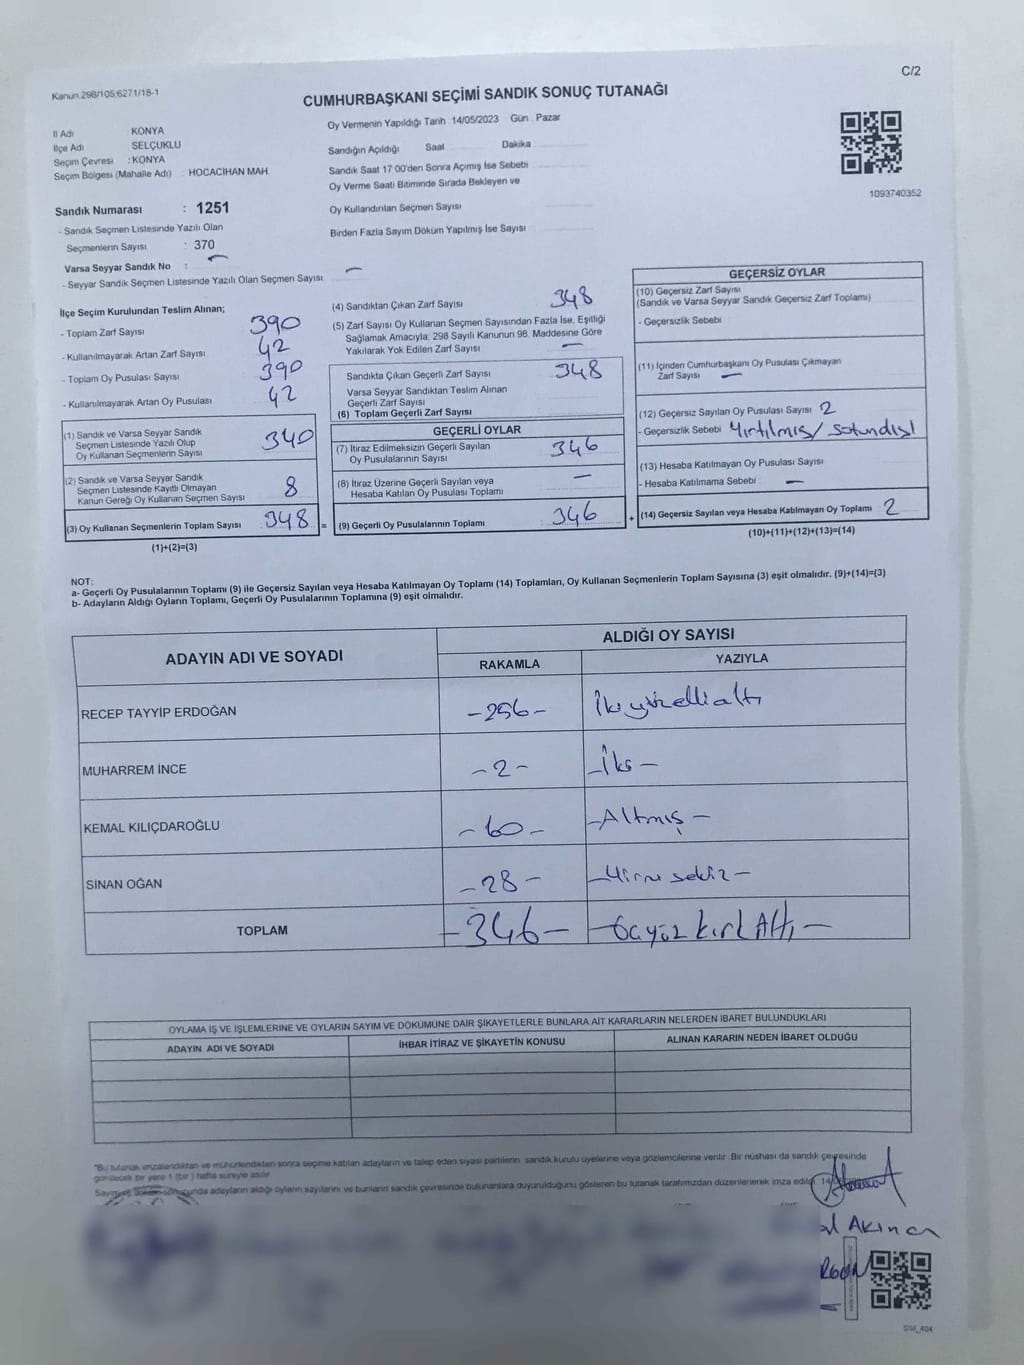 C/2
Kanun 298/105;6271/18-1
CUMHURBAŞKANI SEÇİMİ SANDIK SONUÇ TUTANAĞI
İl Adı KONYA
İlçe Adı SELÇUKLU
Seçim Çevresi : KONYA
Seçim Bölgesi (Mahalle Adı) : HOCACİHAN MAH.
Sandık Numarası : 1251
- Sandık Seçmen Listesinde Yazılı Olan
Seçmenlerin Sayısı : 370
Varsa Seyyar Sandık No : —
- Seyyar Sandık Seçmen Listesinde Yazılı Olan Seçmen Sayısı —
Oy Vermenin Yapıldığı Tarih 14/05/2023 Gün Pazar
Sandığın Açıldığı Saat Dakika
Sandık Saat 17:00'den Sonra Açımış İse Sebebi
Oy Verme Saati Bitiminde Sırada Bekleyen ve
Oy Kullandırılan Seçmen Sayısı
Birden Fazla Sayım Döküm Yapılmış İse Sayısı
1093740352
İlçe Seçim Kurulundan Teslim Alınan;
- Toplam Zarf Sayısı 390
- Kullanılmayarak Artan Zarf Sayısı 42
- Toplam Oy Pusulası Sayısı 390
- Kullanılmayarak Artan Oy Pusulası 42
(1) Sandık ve Varsa Seyyar Sandık
Seçmen Listesinde Yazılı Olup
Oy Kullanan Seçmenlerin Sayısı 340
(2) Sandık ve Varsa Seyyar Sandık
Seçmen Listesinde Kayıtlı Olmayan
Kanun Gereği Oy Kullanan Seçmen Sayısı 8
(3) Oy Kullanan Seçmenlerin Toplam Sayısı : 348 =
(1)+(2)=(3)
(4) Sandıktan Çıkan Zarf Sayısı 348
(5) Zarf Sayısı Oy Kullanan Seçmen Sayısından Fazla İse, Eşitliği
Sağlamak Amacıyla; 298 Sayılı Kanunun 98. Maddesine Göre
Yakılarak Yok Edilen Zarf Sayısı —
Sandıkta Çıkan Geçerli Zarf Sayısı 348
Varsa Seyyar Sandıktan Teslim Alınan
Geçerli Zarf Sayısı
(6) Toplam Geçerli Zarf Sayısı
GEÇERLİ OYLAR
(7) İtiraz Edilmeksizin Geçerli Sayılan
Oy Pusulalarının Sayısı 346
(8) İtiraz Üzerine Geçerli Sayılan veya
Hesaba Katılan Oy Pusulası Toplamı —
(9) Geçerli Oy Pusulalarının Toplamı : 346 +
GEÇERSİZ OYLAR
(10) Geçersiz Zarf Sayısı
(Sandık ve Varsa Seyyar Sandık Geçersiz Zarf Toplamı)
- Geçersizlik Sebebi
(11) İçinden Cumhurbaşkanı Oy Pusulası Çıkmayan
Zarf Sayısı —
(12) Geçersiz Sayılan Oy Pusulası Sayısı 2
- Geçersizlik Sebebi Yırtılmış/
(13) Hesaba Katılmayan Oy Pusulası Sayısı
- Hesaba Katılmama Sebebi —
(14) Geçersiz Sayılan veya Hesaba Katılmayan Oy Toplamı 2
(10)+(11)+(12)+(13)=(14)
NOT:
a- Geçerli Oy Pusulalarının Toplamı (9) ile Geçersiz Sayılan veya Hesaba Katılmayan Oy Toplamı (14) Toplamları, Oy Kullanan Seçmenlerin Toplam Sayısına (3) eşit olmalıdır. (9)+(14)=(3)
b- Adayların Aldığı Oyların Toplamı, Geçerli Oy Pusulalarının Toplamına (9) eşit olmalıdır.
ADAYIN ADI VE SOYADI ALDIĞI OY SAYISI
RAKAMLA YAZIYLA
RECEP TAYYİP ERDOĞAN -256- İkiyüzellialtı
MUHARREM İNCE -2- -İki-
KEMAL KILIÇDAROĞLU -60- -Altmış-
SİNAN OĞAN -28- -Yirmi sekiz-
TOPLAM -346- -Üçyüz kırk Altı-
OYLAMA İŞ VE İŞLEMLERİNE VE OYLARIN SAYIM VE DÖKÜMÜNE DAİR ŞİKAYETLERLE BUNLARA AİT KARARLARIN NELERDEN İBARET BULUNDUKLARI
ADAYIN ADI VE SOYADI İHBAR İTİRAZ VE ŞİKAYETİN KONUSU ALINAN KARARIN NEDEN İBARET OLDUĞU
*Bu tutanak imzalandıktan ve mühürlendikten sonra seçime katılan adayların ve talep eden siyasi partilerin sandık kurulu üyelerine veya gözlemcilerine verilir. Bir nüshası da sandık çevresinde
görülecek bir yere 1 (bir) hafta süreyle asılır.
Sayım ve döküm sonucunda adayların aldığı oyların sayılarını ve bunların sandık çevresinde bulunanlara duyurulduğunu gösteren bu tutanak tarafımızdan düzenlenerek imza edildi. 14